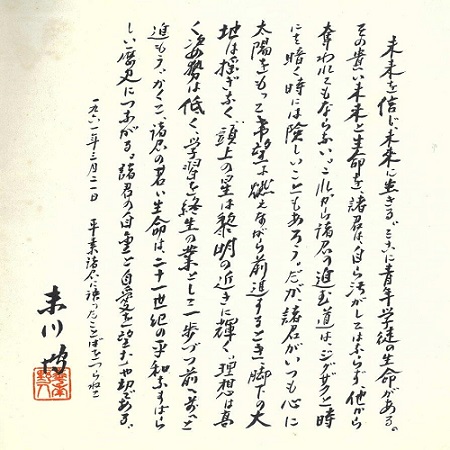 未来を信じ、未来に生きる。そこに青年学徒の生命がある。
その貴い未来と生命を、諸君は、自ら汚がしてはならず他から
奪われてもならない。これから諸君の進む道は、ジグザグと時
にも暗く時には険しいこともあろう。だが、諸君がいつも心に
太陽をもって希望に燃えながら前進するとき、脚下の大
地は揺ぎなく、頭上の星は黎明の近きに輝く、理想は高
く姿勢は低く、学習を終生の業として一歩づつ前へ前へと
進もう。かくて、諸君の若い生命は二十一世紀の平和なすばら
しい歴史につながる。諸君の自重と自愛を望むや切である。
一九六一年三月二一日 平素諸君に語ったことばをつらねて
末川博